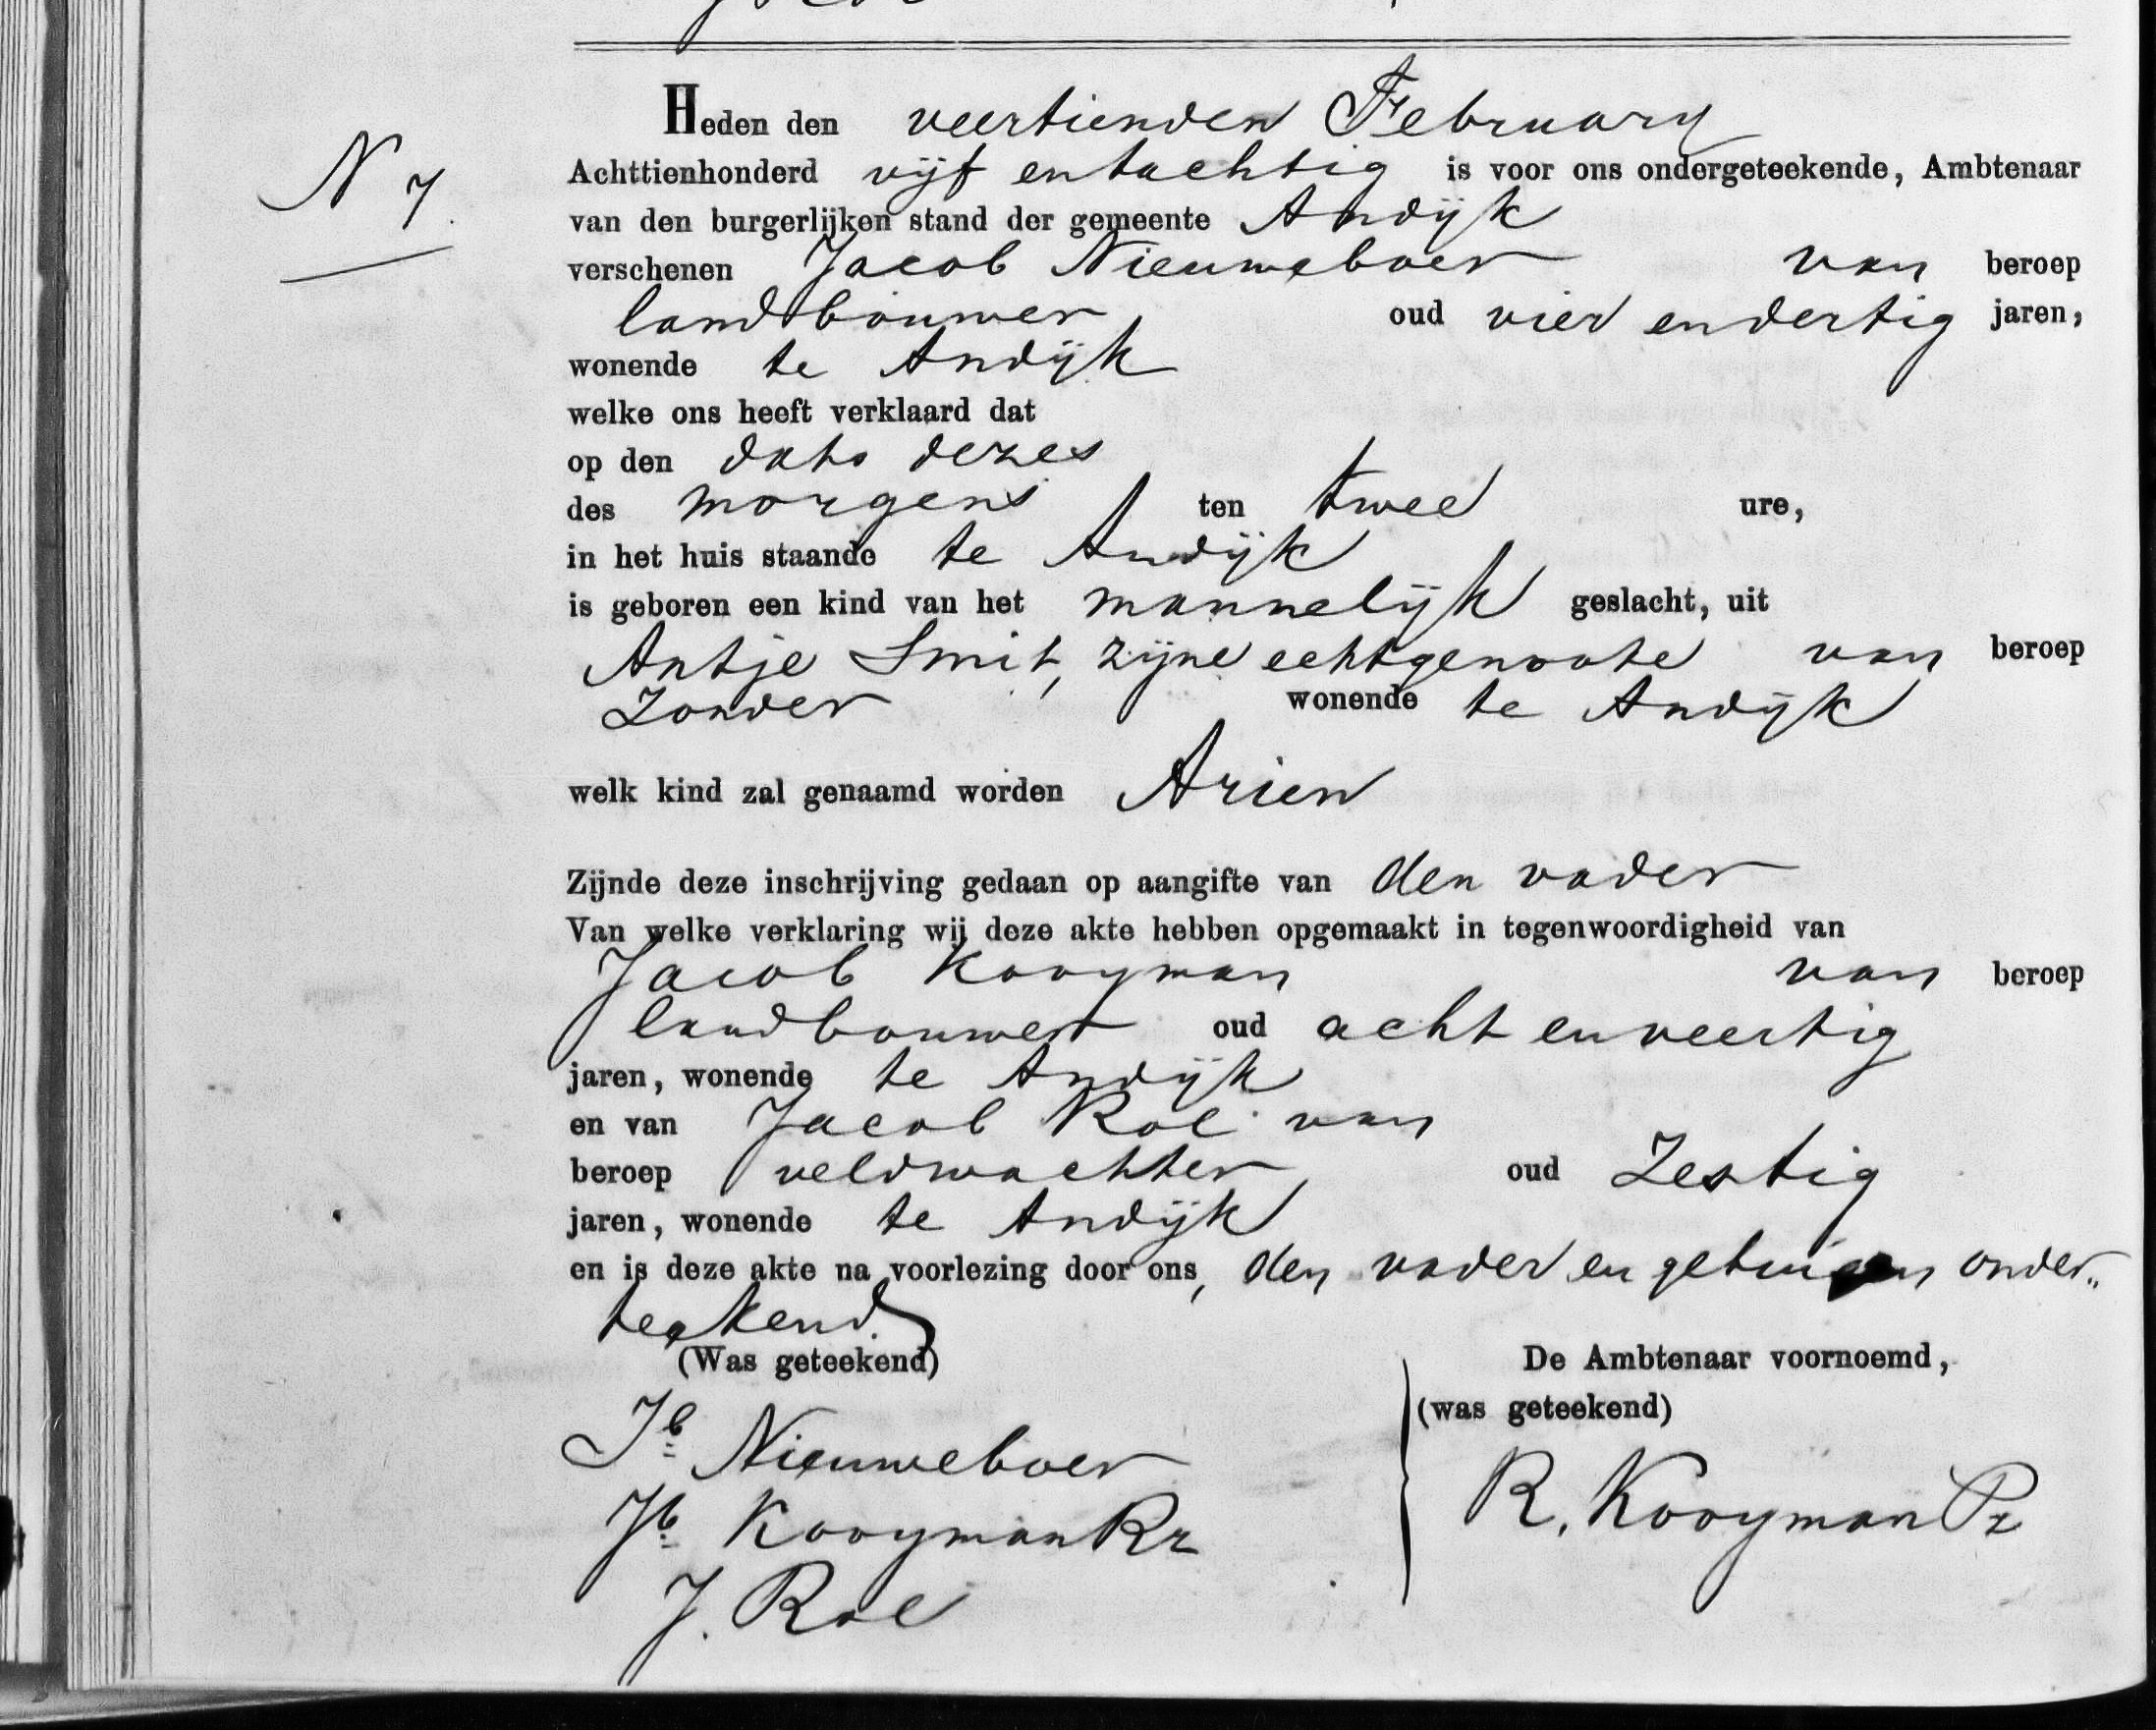 Heden den veertienden February
N 7.
Achttienhonderd vijf en tachtig is voor ons ondergeteekende, Ambtenaar
van den burgerlijken stand der gemeente Andijk
verschenen Jacob Nieuweboer van beroep
landbouwer oud vier en dertig jaren,
wonende te Andijk
welke ons heeft verklaard dat
op den dato dezes
des morgens ten twee ure,
in het huis staande te Andijk
is geboren een kind van het mannelijk geslacht, uit
Antje Smit, zijne echtgenoote van beroep
Zonder wonende te Andijk
welk kind zal genaamd worden Arien
Zijnde deze inschrijving gedaan op aangifte van den vader
Van welke verklaring wij deze akte hebben opgemaakt in tegenwoordigheid van
Jacob Kooyman van beroep
landbouwer oud acht en veertig
jaren, wonende te Andijk
en van Jacob Rol van
beroep veldwachter oud Zestig
jaren, wonende te Andijk
en is deze akte na voorlezing door ons, den vader en getuigen onder„
teekend.
(Was geteekend) De Ambtenaar voornoemd,
(was geteekend)
Jb Nieuweboer
Jb Kooyman Rz R. Kooyman Pz
J. Rol